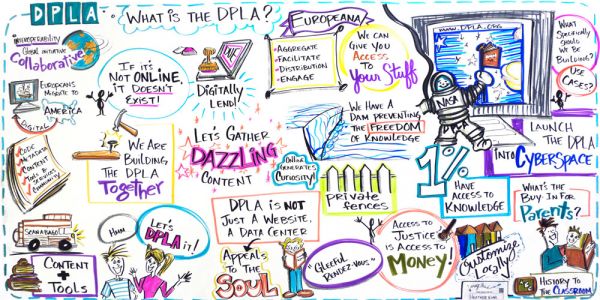 DPLA
WHAT IS THE DPLA?
INTEROPERABILITY
Global initiative
Collaborative
EUROPEANS
MIGRATE TO
AMERICA
DIGITAL
IF IT'S
NOT ONLINE,
IT DOESN'T
EXIST!
DIGITALLY
LEND!
EUROPEANA
• AGGREGATE
• FACILITATE
• DISTRIBUTION
• ENGAGE
WE CAN
GIVE YOU
ACCESS
TO
YOUR STUFF
WWW.DPLA.ORG
NASA
WHAT
SPECIFICALLY
SHOULD
WE BE
BUILDING?
USE
CASES?
CODE
METADATA
CONTENT
TOOLS
SERVICES
COMMUNITY
WE ARE
BUILDING
THE DPLA
Together
LET'S GATHER
DAZZLING
CONTENT
Online
GENERATES
CURIOSITY!
WE HAVE A
DAM PREVENTING
THE FREEDOM
OF KNOWLEDGE
LAUNCH
THE DPLA
INTO CYBERSPACE
PRIVATE
FENCES
1%
HAVE
ACCESS TO
KNOWLEDGE
WHAT'S THE
BUY-IN FOR
Parents?
SCANABAGO!
CONTENT
+
TOOLS
HMM
LET'S
DPLA it!
DPLA IS NOT
JUST A WEBSITE,
A DATA CENTER
APPEALS
TO THE
SOUL
"GLEEFUL
RENDEZ-VOUS"
ACCESS TO
JUSTICE
IS ACCESS TO
MONEY!
CUSTOMIZE
LOCALLY
HISTORY TO
THE CLASSROOM